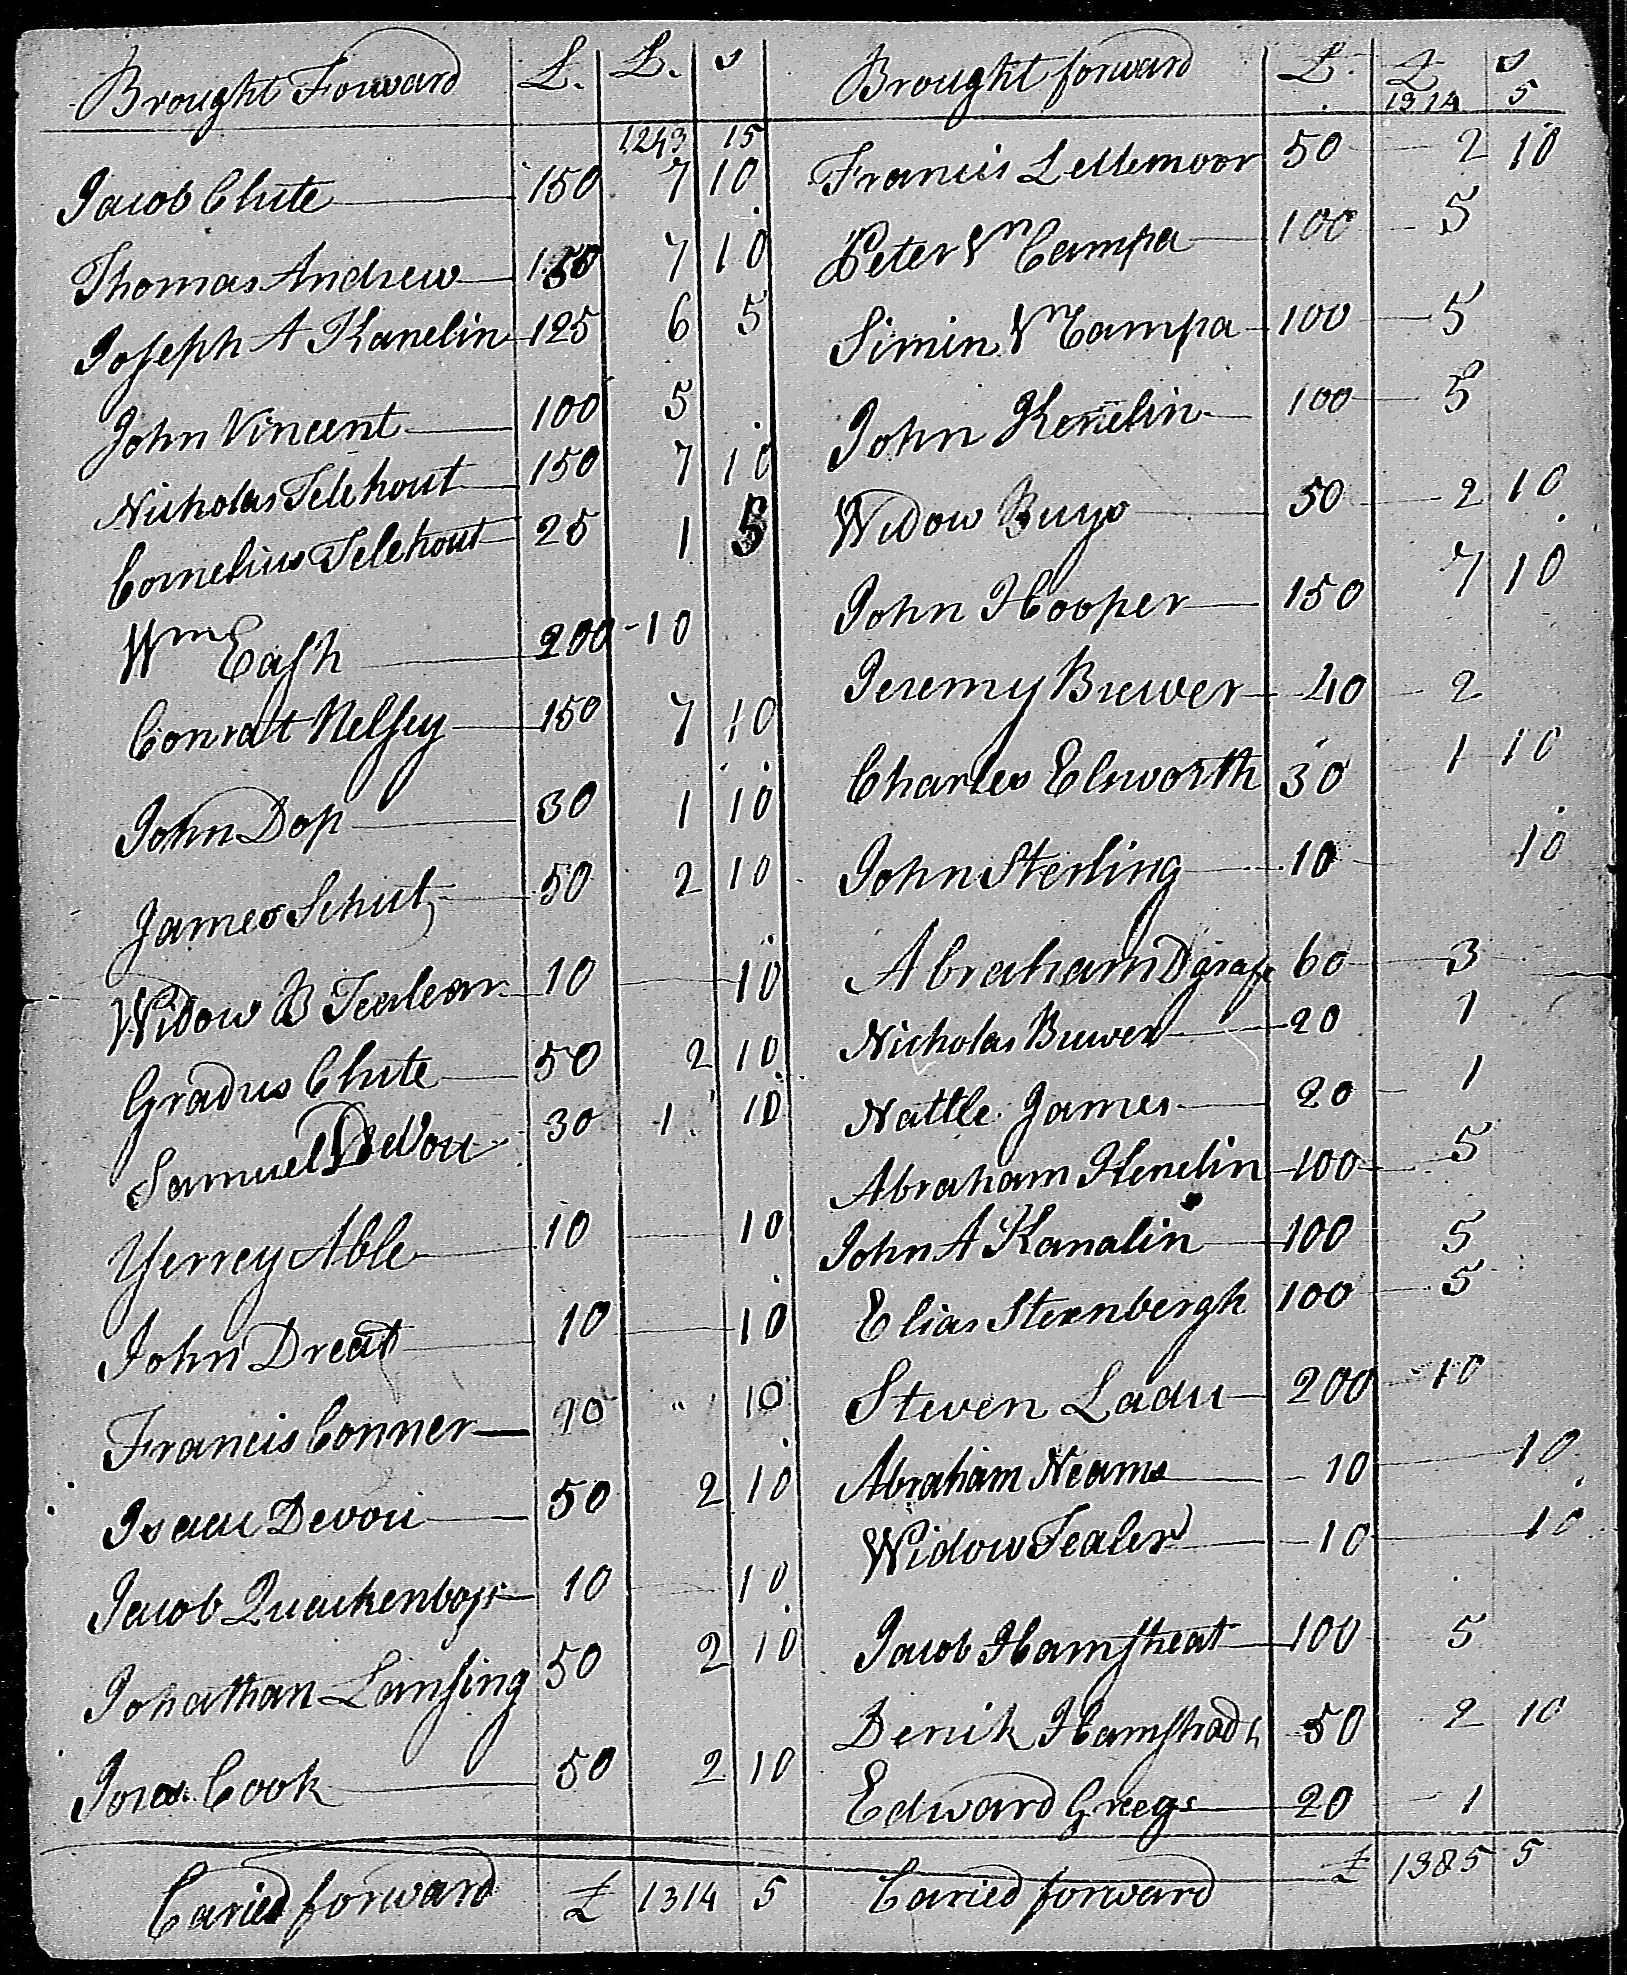 Brought Forward £. £. s
1243 15
Jacob Clute 150 7 10
Thomas Andrew 150 7 10
Joseph A Kanelin 125 6 5
John Vincent 100 5
Nicholas Telehout 150 7 10
Cornelius Telehout 25 1 5
Wm Cash 200 10
Conratt Nelsey 150 7 10
John Dop 30 1 10
James Schut 50 2 10
Widow B 10 10
Gradus Clute 50 2 10
Samuel DeVou 30 1 10
Yerrey Able 10 10
John Dreat 10 10
Francis Conner 10 " 10
Isaac Devou 50 2 10
Jacob Quackenboss 10 10
Johathan Lansing 50 2 10
Cook 50 2 10
Caried forward £ 1314 5
Brought forward £. £ s
1314 5
Francis Lettemoor 50 2 10
Peter Vn Campa 100 5
Simin Vn Campa 100 5
John Kenelin 100 5
Widow Buys 50 2 10
John Hooper 150 7 10
Jeremy Brewer 40 2
Charles Elsworth 30 1 10
John Sterling 10 10
Abraham Dgraff 60 3
Nicholas Brewer 20 1
Nattle James 20 1
Abraham Henelin 100 5
John A Kanalin 100 5
Elias Sternbergh 100 5
Steven Ladu 200 10
Abraham Neams 10 10
Widow Tealer 10 10
Jacob Hamstreat 100 5
Derrik 50 2 10
Edward Gregs 20 1
Caried forward £ 1385 5